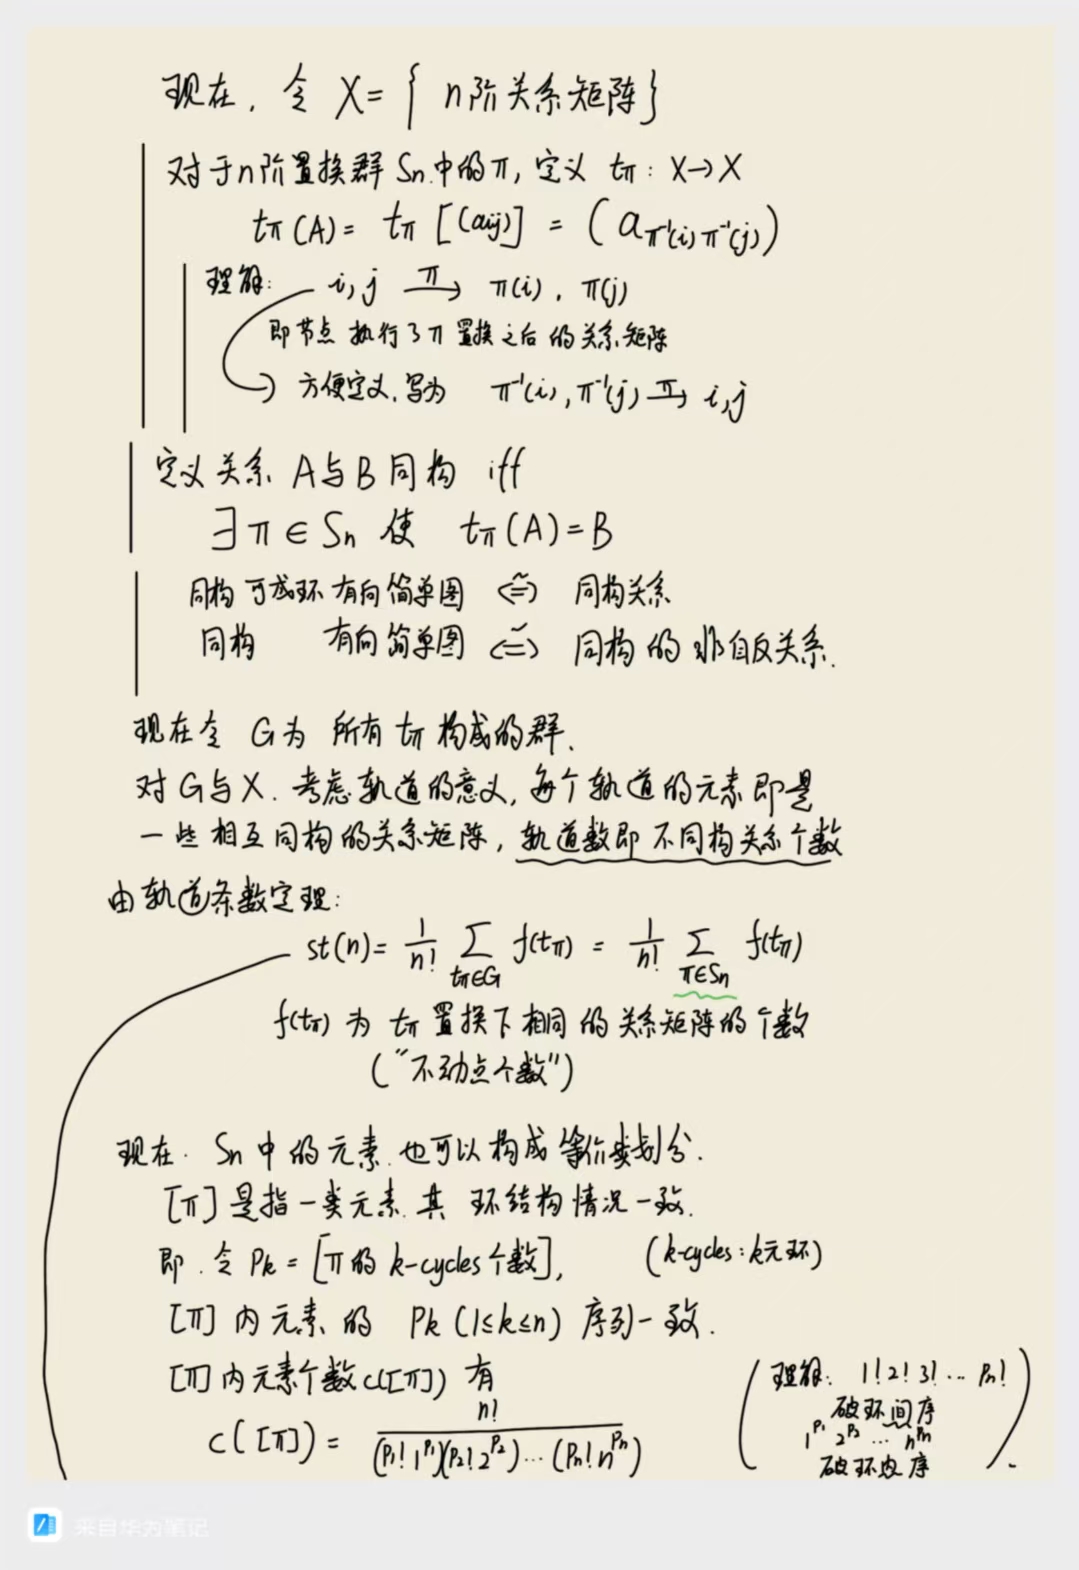 现在，令 X={ n阶关系矩阵}
对于n阶置换群 Sn 中的π, 定义 tπ: X→X
tπ(A)= tπ[(aij)] = (aπ⁻¹(i)π⁻¹(j))
理解: i,j —π→ π(i), π(j)
即节点执行了π置换之后的关系矩阵
方便定义,写为 π⁻¹(i),π⁻¹(j) —π→ i,j
定义关系 A与B同构 iff
∃π∈Sn 使 tπ(A)=B
同构可成环有向简单图 <=~> 同构关系
同构 有向简单图 <=~> 同构的非自反关系.
现在令 G为 所有tπ构成的群.
对G与X. 考虑轨道的意义, 每个轨道的元素即是
一些相互同构的关系矩阵, 轨道数即不同构关系个数
由轨道条数定理:
st(n)= 1/n! Σ tπ∈G f(tπ) = 1/n! Σ π∈Sn f(tπ)
f(tπ) 为 tπ置换下相同的关系矩阵的个数
("不动点个数")
现在. Sn中的元素也可以构成等价类划分.
[π]是指一类元素.其 环结构情况一致.
即.令 Pk=[π的 k-cycles个数], (k-cycles:k元环)
[π]内元素的 Pk (1≤k≤n) 序列一致.
[π]内元素个数c([π])有
c([π]) = n! / (P₁!1^P₁)(P₂!2^P₂)...(Pn!n^Pn)
(理解: 1!2!3!... Pn!
破环间序
1^P₁ 2^P₂ ... n^Pn
破环内序 ).
来自华为笔记